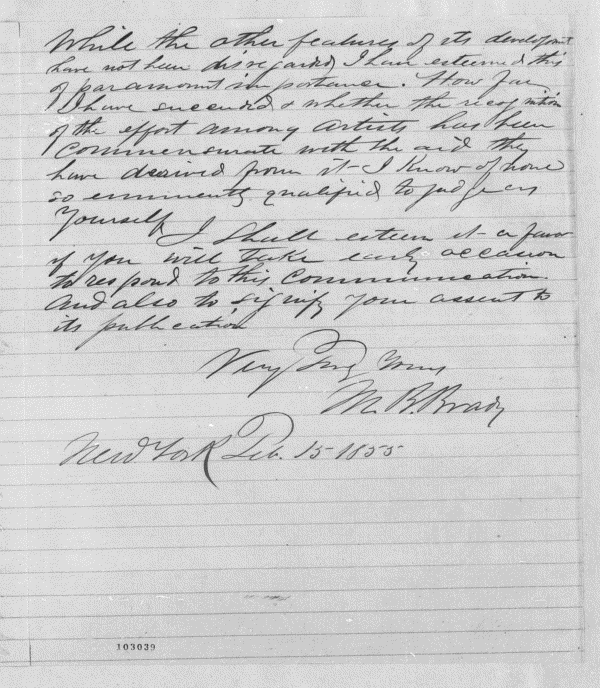 While the other features of its development
have not been disregarded I have esteemed this
of paramount importance. How far
I have succeeded & whether the recognition
of the effort among artists has been
Commensurate with the aid they
have derived from it - I know of none
so eminently qualified to judge as
Yourself
I shall esteem it a favor
if you will take early occasion
to respond to this Communication
And also to signify your assent to
its publication
Very Truly Yours
M. B. Brady
New York Feb. 15 1855
103039